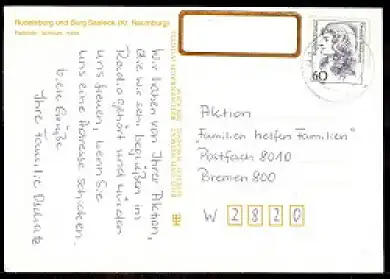 Rudelsburg und Burg Saaleck (Kr. Naumburg)
60
Wir haben von Ihrer Aktion,
die wir sehr begrüßen im
Radio gehört und würden
uns freuen, wenn Sie
uns eine Adresse schicken.
Viele Grüße
Ihre Familie
Aktion
"Familien helfen Familien"
Postfach 8010
Bremen 800
W 2820